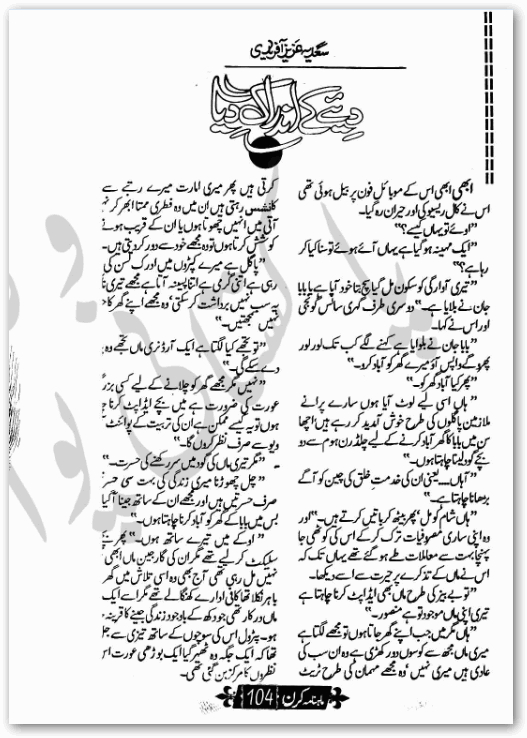 سعدیہ عزیز آفریدی
دیئے کے اندر اک دیا
ابھی ابھی اس کے موبائل فون پر بیل ہوئی تھی
اس نے کال ریسیو کی اور حیران رہ گیا۔
”اوئے تو یہاں کیسے؟“
”ایک مہینہ ہو گیا ہے یہاں آئے ہوئے تو سنا کیا کر
رہا ہے؟“
”تیری آوارگی کو سکون مل گیا سچ بتا خود آیا ہے یا بابا
جان نے بلایا ہے۔“ دوسری طرف گہری سانس گونجی
اور اس نے کہا۔
”بابا جان نے بلوایا ہے کہنے لگے کب تک لور لور
پھرو گے واپس آؤ میرے گھر کو آباد کرو۔“
”پھر کیا آباد گھر کو۔“
”ہاں اسی لیے لوٹ آیا ہوں سارے پرانے
ملازمین پاگلوں کی طرح خوش آمدید کر رہے ہیں اچھا
سن میں بابا کا گھر آباد کرنے کے لیے چلڈرن ہوم سے دو
بچے گود لینا چاہتا ہوں۔“
”آہاں۔۔۔ یعنی ان کی خدمت خلق کی چین کو آگے
بڑھانا چاہتا ہے۔“
”ہاں شام کو مل‘ پھر بیٹھ کر باتیں کرتے ہیں۔“ اور
وہ اپنی ساری مصروفیات ترک کر کے اس کی کو ٹھی جا
پہنچا بہت سے معاملات طے ہو گئے تھے یہاں تک کہ
اس نے ماں کے تذکرے پر حیرت سے اسے دیکھا۔
”تو بے بیز کی طرح ماں بھی ایڈاپٹ کرنا چاہتا ہے
تیری اپنی ماں موجود تو ہے منصور۔“
”ہاں مگر میں جب اپنے گھر جاتا ہوں تو مجھے لگتا ہے
میری ماں مجھ سے کوسوں دور کھڑی ہے وہ ان سب کی
عادی ہیں میری نہیں‘ وہ مجھے مہمان کی طرح ٹریٹ
کرتی ہیں پھر میری امارت میرے رتبے سے
کانشس رہتی ہیں ان میں وہ فطری ممتا ابھر کر نہ
آتی میں انہیں چھوتا ہوں یا ان کے قریب ہونے
کوشش کرتا ہوں تو وہ مجھے خود سے دور کر دیتی ہیں۔
”پاگل ہے میرے کپڑوں میں ادرک لسن کی
رہی ہے اتنی گرمی ہے اتنا پسینہ آتا ہے مجھے تیری
یہ سب نہیں برداشت کر سکتی‘ وہ مجھے اپنے گھر کا
نہیں سمجھتیں۔“
”تو تجھے کیا لگتا ہے ایک آرڈنری ماں تجھے وہ
دے سکے گی۔“
”نہیں مگر مجھے گھر کو چلانے کے لیے کسی بزر
عورت کی ضرورت ہے میں بچے ایڈاپٹ کرنا چ
ہوں تو یہ کیسے ممکن ہے ان کی تربیت کے پوائنٹ
ویو سے صرف نظر کروں گا۔“
”مگر تیری ماں کی گود میں سر رکھنے کی حسرت۔“
”چل چھوڑنا میری زندگی کی بہت سی حسر
صرف حسرتیں ہیں اور مجھے ان کے ساتھ جینا آ گیا
بس میں بابا کے گھر کو آباد کرنا چاہتا ہوں۔“
”اوکے میں تیرے ساتھ ہوں۔“ پھر بچے
سلیکٹ کر لیے تھے مگر ان کی گارجین ماں ابھی
نہیں مل رہی تھی آج بھی وہ اسی تلاش میں گھر
باہر نکلا تھا کافی ادارے کھنگالے تھے مگر اسے ایک
ماں درکار تھی جو دکھ کے باوجود زندگی جینے کا قرینہ
ہو۔ پٹرول اس کی سوچوں کے ساتھ تیزی سے جل
تھا کہ ایک جگہ وہ ٹھہر گیا ایک بوڑھی عورت اس
نظروں کا مرکز بن گئی تھی۔
ماہنامہ کرن 104